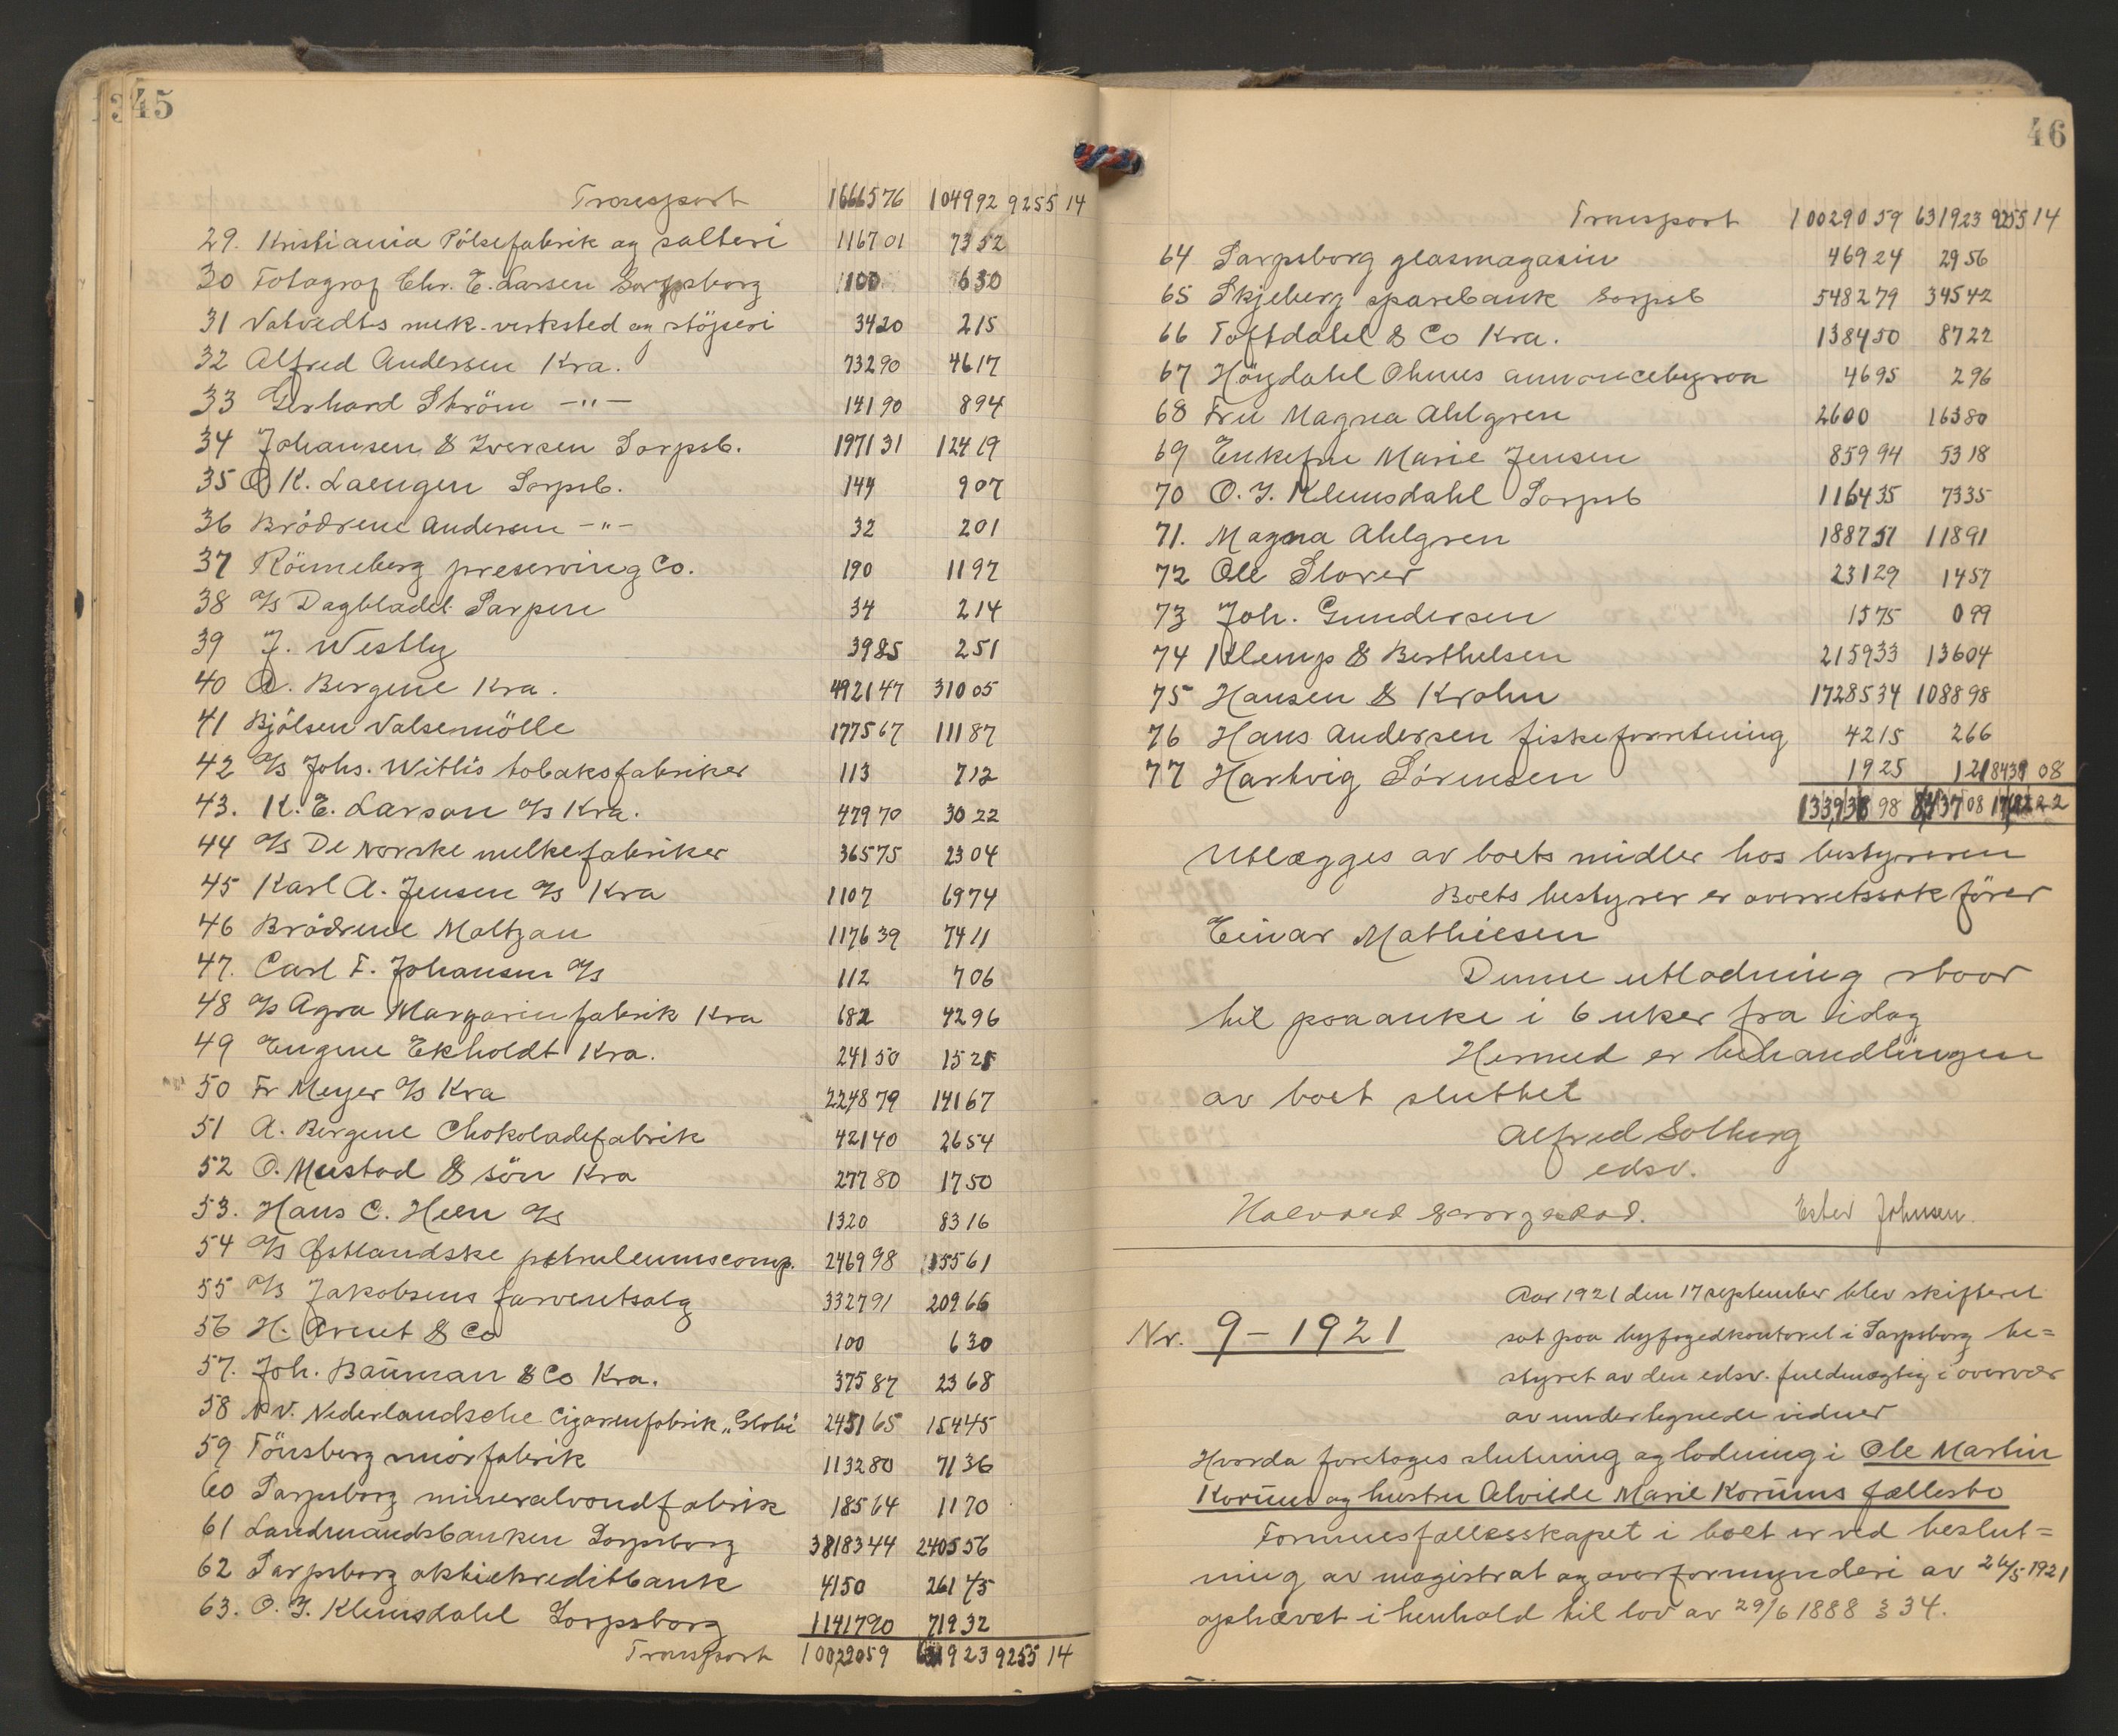 45
Transport 16665 76 1049 92 9255 14
29. Kristiania Pölsefabrik og salteri 1167 01 73 52
30 Fotograf Chr. E. Larsen Sarpsborg 100 6 30
31 Vatvedts mek. verksted og stöperi 34 20 2 15
32 Alfred Andersen Kra. 732 90 46 17
33 Gerhard Ström -"- 141 90 8 94
34 Johansen & Iversen Sarpsb. 1971 31 124 19
35 O K. Laengen Sarpsb. 144 9 07
36 Brödrene Andersen -"- 32 2 01
37 Rönneberg preserving Co. 190 11 97
38 A/S Dagbladet Sarpen 34 2 14
39 J. Westly 39 85 2 51
40 A. Bergene Kra. 4921 47 310 05
41 Bjölsen Valsemölle 1775 67 111 87
42 A/S Johs. Witlis tobaksfabriker 113 7 12
43. K. E. Larson A/S Kra. 479 70 30 22
44 A/S De Norske melkefabriker 365 75 23 04
45 Karl A. Jensen A/S Kra 1107 69 74
46 Brödrene Maltzau 1176 39 74 11
47. Carl F. Johansen A/S 112 7 06
48 A/S Agra Margarinfabrik Kra 682 42 96
49 Eugene Ekholdt Kra. 241 50 15 21
50 Fr Meyer A/S Kra 2248 79 141 67
51 A. Bergene Chokoladefabrik 421 40 26 54
52 O. Mustad & sön Kra 277 80 17 50
53. Hans C. Heen A/S 1320 83 16
54 A/S Østlandske petroleumscomp. 2469 98 155 61
55 A/S Jakobsens farveutsalg 3327 91 209 66
56 H. Arent & Co 100 6 30
57. Joh. Bauman & Co Kra. 375 87 23 68
58 N.V. Nederlandsche Cigarenfabrik "Globe" 2451 65 154 45
59 Tönsberg smörfabrik 1132 80 71 36
60 Sarpsborg mineralvandfabrik 185 64 11 70
61 Landmandsbanken Sarpsborg 38183 44 2405 56
62 Sarpsborg aktiekreditbank 4150 261 45
63. O. J. Klemsdahl Sarpsborg 11417 90 719 32
Transport 100290 59 6319 23 9255 14
46
Transport 100290 59 6319 23 9255 14
64 Sarpsborg glasmagasin 469 24 29 56
65 Skjeberg sparebank Sarpsb 5482 79 345 42
66 Toftdahl & Co Kra. 1384 50 87 22
67 Höydahl Ohmes annoncebyraa 46 95 2 96
68 Fru Magna Ahlgren 2600 163 80
69 Enkefru Marie Jensen 859 94 53 18
70 O. J. Klemsdahl Sarpsb 1164 35 73 35
71. Magna Ahlgren 1887 51 118 91
72 Ole Storer 231 29 14 57
73 Joh. Gundersen 15 75 0 99
74 Klemp & Berthelsen 2159 33 136 04
75 Hansen & Krohn 17285 34 1088 98
76 Hans Andersen fiskeforretning 42 15 2 66
77 Hartvig Sörensen 19 25 1 21 8437 08
133,938 98 8,437 08 17,692 22
Utlægges av boets midler hos bestyreren
Boets bestyrer er overretssakförer
Einar Mathiesen
Denne utlodning staar
til paaanke i 6 uker fra idag
Hermed er behandlingen
av boet sluttet
Alfred Solberg
edsv.
Halvard Ester Johnsen.
Nr. 9 - 1921
Aar 1921 den 17 september blev skifteret
sat paa byfogedkontoret i Sarpsborg be=
styret av den edsv. fuldmægtig i overvær
av undertegnede vidner
Hvorda foretoges slutning og lodning i Ole Martin
Korums og hustru Alvilde Marie Korums fællesbo
Formuesfællesskapet i boet er ved beslut=
ning av magistrat og overformynderi av 26/5 1921
ophævet i henhold til lov av 29/6 1888 § 34.